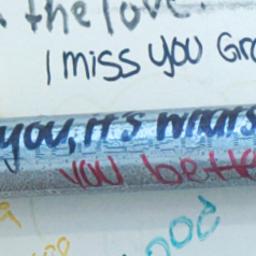 the love.
I miss you Gra
you, it's whats
you bette